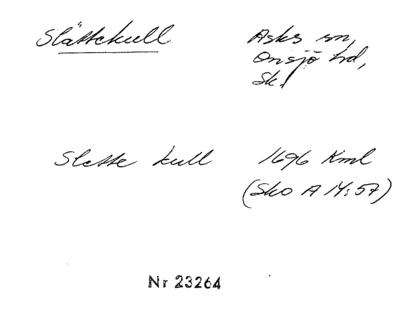 Slättekull Asks sn,
Onsjö hd,
Sk.
Slette kull 1696 Kml
(Sko A 14:57)
Nr 23264